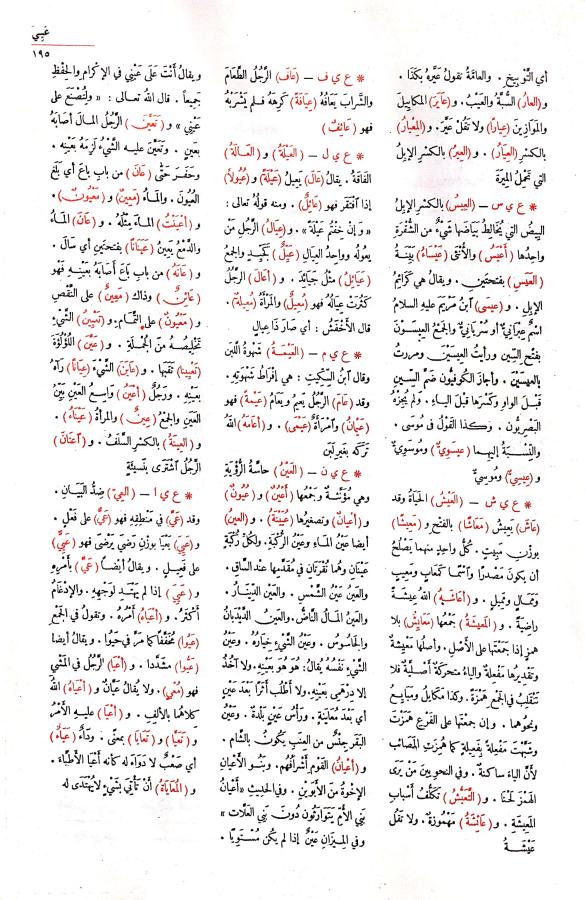 عَيِيَ
١٩٥
أي التَّوْبِيخ . والعامَّةُ تقولُ عَيَّرَهُ بكَذا .
و (العارُ) السُّبَّةُ والعَيْبُ . و (عَايَرَ) المكايِيلَ
والمَوَازينَ (عِيارًا) ولا تَقُلْ عَيَّرَ . و (المِعْيارُ)
بالكسرِ (العِيَارُ) . و (العِيرُ) بالكسْرِ الإبِلُ
التي تَحْمِلُ المِيرَةَ
* ع ي س – (العِيسُ) بالكسرِ الإبِلُ
البِيضُ التي يُخالِطُ بَياضَها شيءٌ من الشُّقْرةِ
واحِدُها (أَعْيَسُ) والأُنْثَى (عَيْسَاءُ) بَيِّنَةُ
(العَيَسِ) بفتحتين . ويقالُ هي كَرَائمُ
الإبلِ . و (عِيسَى) ابنُ مَرْيَمَ عليه السلامُ
اسْمٌ عِبْرانِيٌّ أو سُرْيانِيٌّ والجمعُ العِيسَوْنَ
بفتح السِّين ورأيتُ العِيسَيْنَ ومررتُ
بالعِيسَيْنَ . وأجازَ الكوفِيُّون ضمَّ السِّينِ
قَبْلَ الواوِ وكَسْرَها قبْلَ الياء . ولم يُجِزْهُ
البَصْرِيُّون . وكذا القَوْلُ في مُوسَى .
والنِّسْبَةُ إليهما (عِيسَوِيٌّ) ومُوسَوِيٌّ
و (عِيسِيٌّ) ومُوسِيٌّ
* ع ي ش – (العَيْشُ) الحَيَاةُ وقد
(عَاشَ) يَعِيشُ (مَعَاشًا) بالفتح و (مَعِيشًا)
بوزن مَبِيتٍ . كُلُّ واحدٍ منهما يَصْلُحُ
أن يكونَ مَصْدَرًا وأسْمًا كمَعَابٍ ومَعِيبٍ
ومَمَالٍ ومَمِيلٍ . و (أعَاشَهُ) اللهُ عِيشَةً
راضِيَةً . و (المَعِيشَةُ) جَمْعُها (مَعَايِشُ) بلا
همزٍ إذا جَمَعْتَها على الأصْلِ . وأصلُها مَعْيِشَةٌ
وتَقْدِيرُها مَفْعِلَةٌ والياءُ متحركةٌ أصْلِيةٌ فلا
تَنْقَلِبُ في الجمْع هَمْزَةً . وكذا مَكايِلُ ومَبايِعُ
ونحوُهما . وإن جمعْتَها على الفَرْعِ هَمَزْتَ
وشَبَّهْتَ مَفْعِلَةً بفَعِيلَةٍ كما هُمِزَتِ المَصَائبُ
لأنَّ الياءَ ساكنةٌ . وفي النحويين من يَرَى
الهَمْزَ لَحْنًا . و (التَّعَيُّشُ) تَكَلُّفُ أسْبابِ
المَعِيشَةِ . و (عائشَةُ) مَهْمُوزَةٌ . ولا تَقُلْ
عَيْشَةُ
* ع ي ف – (عَافَ) الرَّجُلُ الطَّعَامَ
والشَّرابَ يَعَافُهُ (عِيَافَةً) كَرِهَهُ فلم يَشْرَبْهُ
فهو (عائِفٌ)
* ع ي ل – (العَيْلَةُ) و (العَالَةُ)
الفاقَةُ . يقالُ (عَالَ) يَعِيلُ (عَيْلَةً) و (عُيُولًا)
إذا افْتَقَر فهو (عَائِلٌ) . ومنه قولُه تعالى :
« وَإنْ خِفْتُمْ عَيْلَةً » . و (عِيَالُ) الرَّجُلِ مَنْ
يَعُولُه وواحِدُ العِيالِ (عَيِّلٌ) كَجَيِّدٍ والجمعُ
(عَيَائِلُ) مثْلُ جَيَائدَ . و (أعَالَ) الرَّجُلُ
كَثُرَتْ عِيَالُه فهو (مُعِيلٌ) والمرأَةُ (مُعِيلَةٌ) .
قال الأخْفَشُ : أي صَارَ ذَا عِيالٍ
* ع ي م – (العَيْمَةُ) شَهْوَةُ اللَّبَنِ
وقال ابنُ السِّكِّيتِ : هي إفْراطُ شَهْوَتِهِ .
وقد (عَامَ) الرَّجُلُ يَعِيمُ ويَعَامُ (عَيْمَةً) فهو
(عَيْمَانُ) وامْرَأَةٌ (عَيْمَى) . و (أعَامَهُ) اللهُ
تَرَكَه بغيرِ لَبَنٍ
* ع ي ن – (العَيْنُ) حاسَّةُ الرُّؤْيَةِ
وهي مُؤَنَّثةٌ وجَمْعُها (أَعْيُنٌ) و (عُيُونٌ)
و (أعْيانٌ) وتصغيرُها (عُيَيْنَةٌ) . و (العينُ)
أيضا عَيْنُ الماءِ وعَيْنُ الرُّكْبَةِ . ولكلِّ رُكْبَةٍ
عَيْنانِ وهما نُقْرَتانِ في مُقَدَّمِها عندَ السَّاقِ .
والعَيْنُ عَيْنُ الشَّمْسِ . والعَيْنُ الدِّينارُ .
والعَيْنُ المالُ النَّاضُّ . والعَيْنُ الدَّيْدَبانُ
والجاسُوسُ . وعَيْنُ الشَّيْءِ خِيَارُهُ . وعَيْنُ
الشَّيْءِ نَفْسُهُ يُقالُ: هُوَ هُوَ بِعَيْنِهِ . ولا آخُذُ
إلا دِرْهَمِي بعَيْنِهِ . ولا أطْلُبُ أثَرًا بَعْدَ عَيْنٍ
أي بَعْدَ مُعَايَنَةٍ . ورَأْسُ عَيْنٍ بَلْدَةٌ . وعَيْنُ
البقَرِ جِنْسٌ من العِنَبِ يَكونُ بالشَّامِ .
و (أَعْيَانُ) القَوْمِ أشْرافُهُم . وبَنُو الأَعْيانِ
الإخْوَةُ مِنَ الأَبَوَيْنِ . وفي الحديثِ « أَعْيانُ
بَنِي الأُمِّ يَتَوَارَثُون دُونَ بَنِي العَلّاتِ »
وفي المِيزانِ عَيْنٌ إذا لم يكن مُسْتَوِيًا .
ويقالُ أَنْتَ على عَيْنِي في الإكرامِ والحِفْظِ
جَمِيعاً . قال اللهُ تعالى : « وَلِتُصْنَعَ عَلَى
عَيْنِي » و (تَعَيَّنَ) الرَّجُلُ المَالَ أصَابَهُ
بعَينٍ . وتَعَيَّنَ عليه الشَّيْءُ لَزِمَهُ بعَيْنِه .
وحَفَرَ حَتَّى (عَانَ) من باب باعَ أي بلَغَ
العُيُونَ . والماءُ (مَعِينٌ) و (مَعْيُونٌ) .
و (أَعْيَنْتُ) الماءَ مِثْلُهُ . و (عَانَ) الماءُ
والدَّمْعُ يَعِينُ (عَيَنَانًا) بفتحتين أي سَالَ .
و (عَانَهُ) من باب بَاعَ أصابَهُ بعَيْنِهِ فهو
(عَائِنٌ) وذاك (مَعِينٌ) على النَّقْصِ
و (مَعْيُونٌ) على التَّمام . و (تَعْيِينُ) الشَّيْءِ
تَخْلِيصُهُ من الجُمْلَةِ . و (عَيَّنَ) اللُّؤْلُؤَةَ
(تَعْيِينًا) ثَقَبَها . و (عَايَنَ) الشَّيْءَ (عِيَانًا) رَآهُ
بعَيْنِه . ورَجُلٌ (أَعْيَنُ) وَاسِعُ العَيْنِ بَيِّنُ
العَيَنِ والجَمْعُ (عِينٌ) والمرأةُ (عَيْنَاءُ) .
و (العِينَةُ) بالكسرِ السَّلَفُ . و (اعْتَانَ)
الرَّجُلُ اشْتَرى بنَسِيئَةٍ
* ع ي ا – (العِيُّ) ضِدُّ البَيَانِ .
وقد (عَيَّ) في مَنْطِقِهِ فهو (عَيٌّ) على فَعْلٍ .
و (عَيِيَ) يَعْيَا بوزنِ رَضِيَ يَرْضَى فهو (عَيِيٌّ)
على فَعِيلٍ . ويقالُ أيضاً (عَيَّ) بأَمْرِهِ
و (عَيِيَ) إذا لم يَهْتَدِ لِوَجْهِهِ . والإدْغامُ
أَكْثَرُ . و (أعْياهُ) أَمْرُهُ . وتقولُ في الجَمْعِ
(عَيُوا) مُخَفَّفًا كما مَرَّ في حَيُوا . ويقالُ أيضا
(عَيُّوا) مشدَّدا . و (أعْيا) الرَّجُلُ في المَشْيِ
فهو (مُعْيٍ) . ولا يُقالُ عَيَّانٌ و (أعْياهُ) اللهُ
كلاهُما بالألفِ . و (أعْيا) عليه الأَمْرُ
و (تَعَيَّا) و (تَعَايَا) بمعنًى . ودَاءٌ (عَيَاءٌ)
أي صَعْبٌ لا دَوَاءَ له كأنه أعْيا الأَطِبَّاءَ .
و (المُعَايَاةُ) أنْ تَأْتِيَ بشَيْءٍ لا يُهْتَدَى له